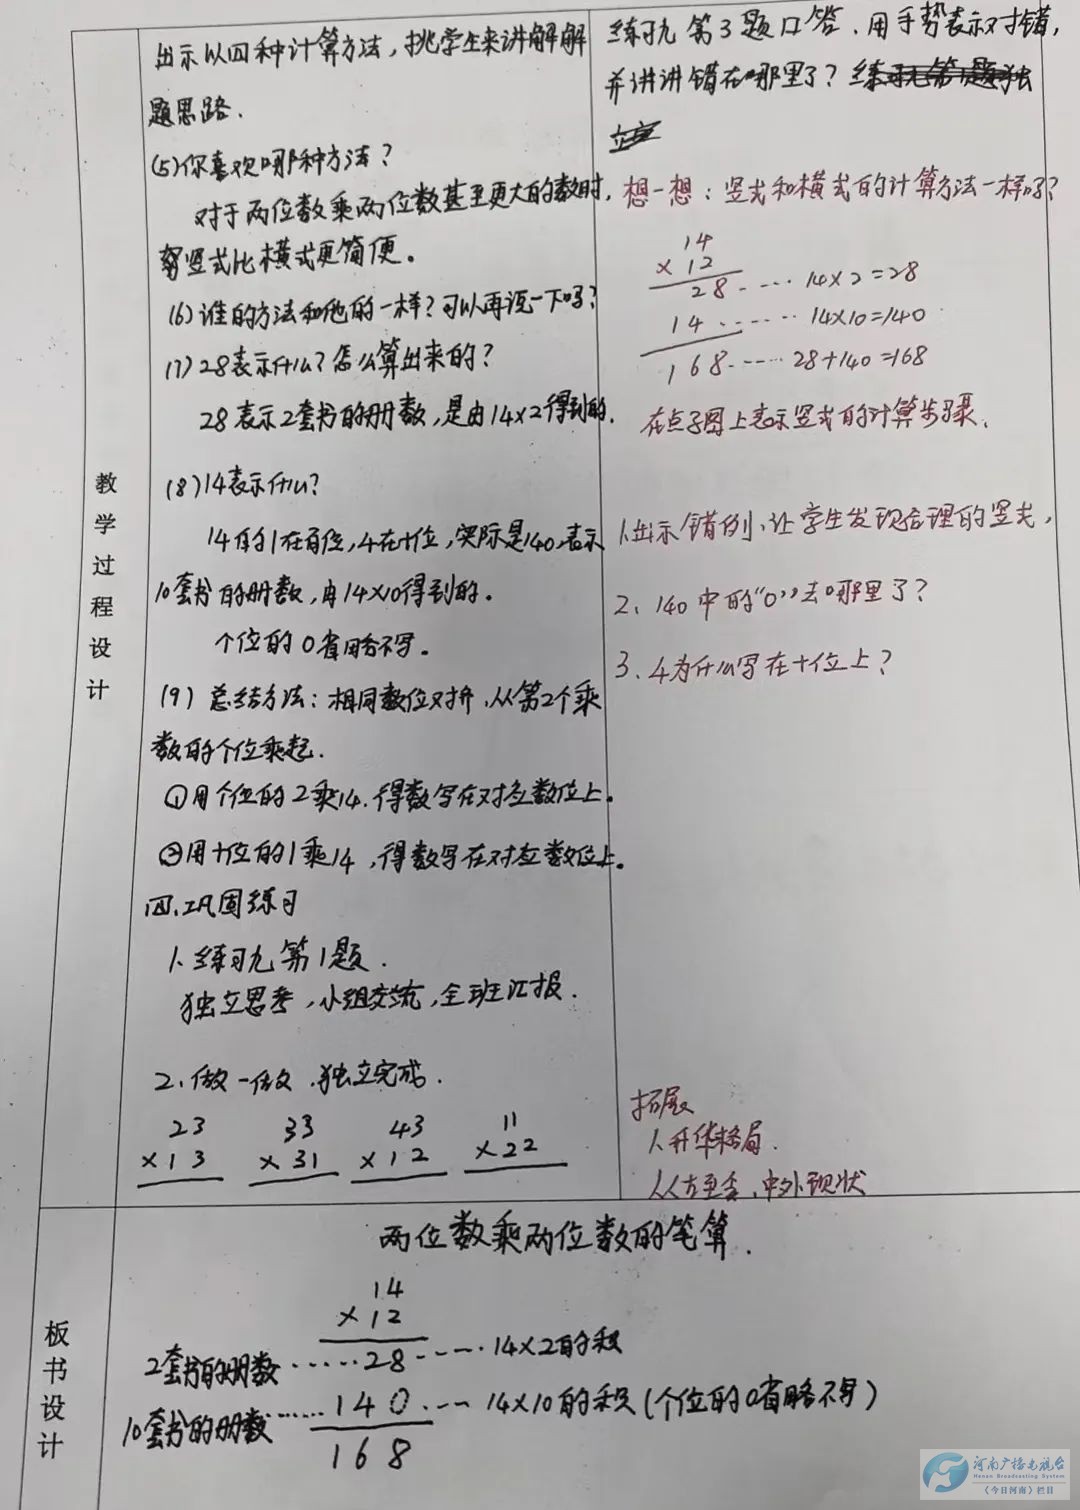 教学过程设计
出示以四种计算方法,挑学生来讲解解
题思路.
(5)你喜欢哪种方法?
对于两位数乘两位数甚至更大的数时,
写竖式比横式更简便。
(6)谁的方法和他的一样?可以再说一下吗?
(7)28表示什么?怎么算出来的?
28表示2套书的册数,是由14×2得到的.
(8)14表示什么?
14的1在百位,4在十位,实际是140,表示
10套书的册数,由14×10得到的。
个位的0省略不写。
(9)总结方法:相同数位对齐,从第2个乘
数的个位乘起.
①用个位的2乘14.得数写在对应数位上。
②用十位的1乘14,得数写在对应数位上。
四.巩固练习
1.练习九第1题.
独立思考,小组交流,全班汇报.
2.做一做.独立完成.
23 33 43 11
×13 ×31 ×12 ×22
练习九第3题口答.用手势表示对错,
并讲讲错在哪里了?练习九第1题独
立
想一想:竖式和横式的计算方法一样吗?
14
×12
28.····14×2=28
14······14×10=140
168.····28+140=168
在点子图上表示竖式的计算步骤.
1.出示错例,让学生发现合理的竖式,
2、140中的“0”去哪里了?
3.4为什么写在十位上?
拓展
1.升华格局.
从古至今,中外现状
板书设计
两位数乘两位数的笔算.
14
×12
2套书的册数······28·····14×2的积
10套书的册数······140.···14×10的积(个位的0省略不写)
168
河南广播电视台
Henan Broadcasting System
《今日河南》栏目